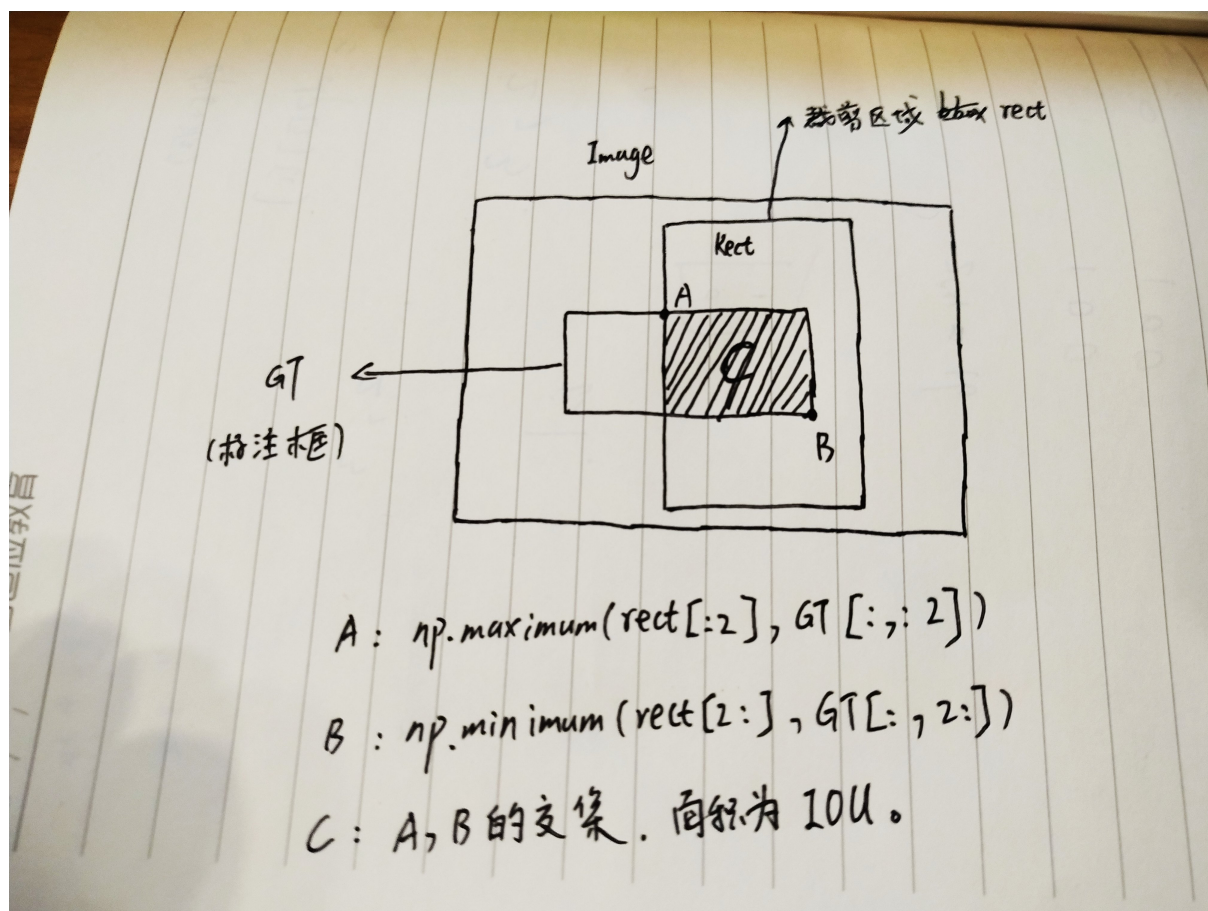 裁剪区域 rect
Image
Rect
A
C
GT
(标注框)
B
A: np.maximum(rect[:2], GT[:,:2])
B: np.minimum(rect[2:], GT[:,2:])
C: A,B的交集. 面积为IOU。